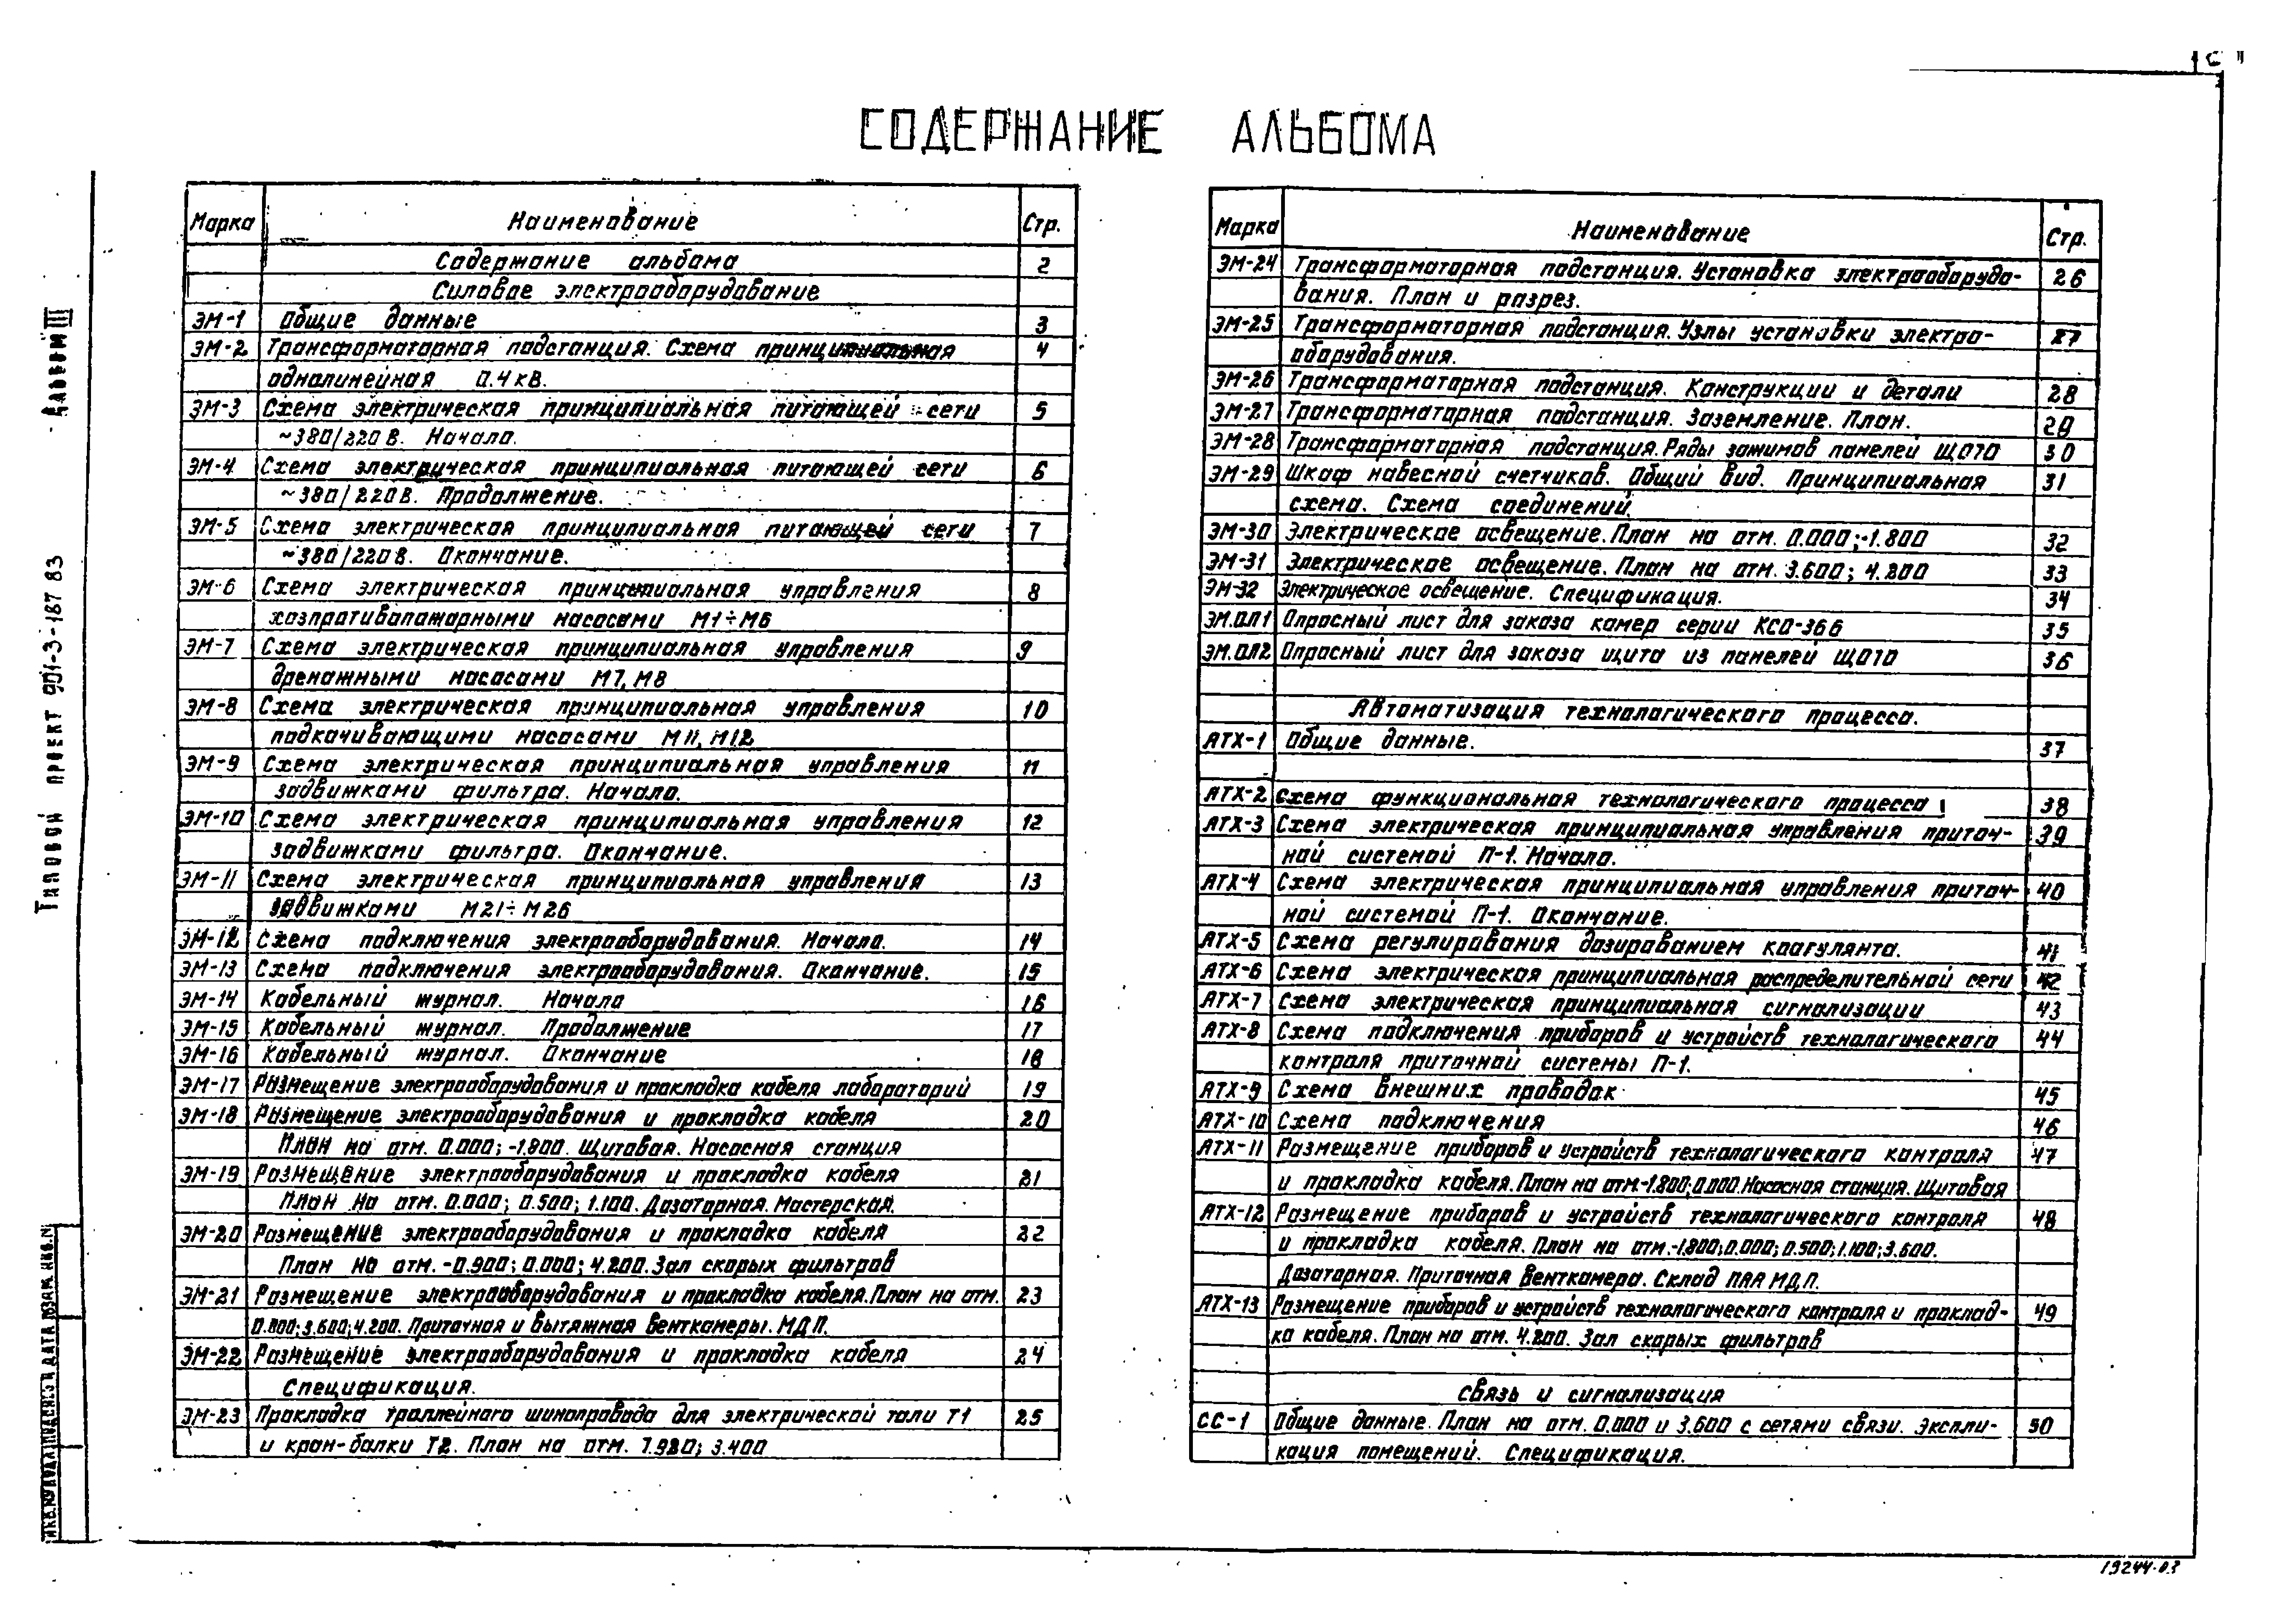 СОДЕРЖАНИЕ АЛЬБОМА
Альбом III
Типовой проект 901-3-187 83
Марка Наименование Стр.
Содержание альбома 2
Силовое электрооборудование
ЭМ-1 Общие данные 3
ЭМ-2 Трансформаторная подстанция. Схема принципиальная 4
однолинейная 0.4 кВ.
ЭМ-3 Схема электрическая принципиальная питающей сети 5
~380/220 В. Начало.
ЭМ-4 Схема электрическая принципиальная питающей сети 6
~380/220 В. Продолжение.
ЭМ-5 Схема электрическая принципиальная питающей сети 7
~380/220 В. Окончание.
ЭМ-6 Схема электрическая принципиальная управления 8
хозпротивопожарными насосами М1÷М6
ЭМ-7 Схема электрическая принципиальная управления 9
дренажными насосами М7, М8
ЭМ-8 Схема электрическая принципиальная управления 10
подкачивающими насосами М11, М12
ЭМ-9 Схема электрическая принципиальная управления 11
задвижками фильтра. Начало.
ЭМ-10 Схема электрическая принципиальная управления 12
задвижками фильтра. Окончание.
ЭМ-11 Схема электрическая принципиальная управления 13
задвижками М21÷М26
ЭМ-12 Схема подключения электрооборудования. Начало. 14
ЭМ-13 Схема подключения электрооборудования. Окончание. 15
ЭМ-14 Кабельный журнал. Начало 16
ЭМ-15 Кабельный журнал. Продолжение 17
ЭМ-16 Кабельный журнал. Окончание 18
ЭМ-17 Размещение электрооборудования и прокладка кабеля лабораторий 19
ЭМ-18 Размещение электрооборудования и прокладка кабеля 20
План на отм. 0.000; -1.800. Щитовая. Насосная станция
ЭМ-19 Размещение электрооборудования и прокладка кабеля 21
План на отм. 0.000; 0.500; 1.100. Дозаторная. Мастерская.
ЭМ-20 Размещение электрооборудования и прокладка кабеля 22
План на отм. -0.900; 0.000; 4.200. Зал скорых фильтров
ЭМ-21 Размещение электрооборудования и прокладка кабеля. План на отм. 23
0.000; 3.600; 4.200. Приточная и вытяжная венткамеры. МДП.
ЭМ-22 Размещение электрооборудования и прокладка кабеля 24
Спецификация.
ЭМ-23 Прокладка троллейного шинопровода для электрической тали Т1 25
и кран-балки Т2. План на отм. 7.980; 3.400
Марка Наименование Стр.
ЭМ-24 Трансформаторная подстанция. Установка электрооборудо- 26
вания. План и разрез.
ЭМ-25 Трансформаторная подстанция. Узлы установки электро- 27
оборудования.
ЭМ-26 Трансформаторная подстанция. Конструкции и детали 28
ЭМ-27 Трансформаторная подстанция. Заземление. План. 29
ЭМ-28 Трансформаторная подстанция. Ряды зажимов панелей ЩО70 30
ЭМ-29 Шкаф навесной счетчиков. Общий вид. Принципиальная 31
схема. Схема соединений.
ЭМ-30 Электрическое освещение. План на отм. 0.000; -1.800 32
ЭМ-31 Электрическое освещение. План на отм. 3.600; 4.200 33
ЭМ-32 Электрическое освещение. Спецификация. 34
ЭМ.ОЛ1 Опросный лист для заказа камер серии КСО-366 35
ЭМ.ОЛ2 Опросный лист для заказа щита из панелей ЩО70 36
Автоматизация технологического процесса.
АТХ-1 Общие данные. 37
АТХ-2 Схема функциональная технологического процесса 38
АТХ-3 Схема электрическая принципиальная управления приточ- 39
ной системой П-1. Начало.
АТХ-4 Схема электрическая принципиальная управления приточ- 40
ной системой П-1. Окончание.
АТХ-5 Схема регулирования дозированием коагулянта. 41
АТХ-6 Схема электрическая принципиальная распределительной сети 42
АТХ-7 Схема электрическая принципиальная сигнализации 43
АТХ-8 Схема подключения приборов и устройств технологического 44
контроля приточной системы П-1.
АТХ-9 Схема внешних проводок 45
АТХ-10 Схема подключения 46
АТХ-11 Размещение приборов и устройств технологического контроля 47
и прокладка кабеля. План на отм.-1.800; 0.000. Насосная станция. Щитовая
АТХ-12 Размещение приборов и устройств технологического контроля 48
и прокладка кабеля. План на отм.-1.800; 0.000; 0.500; 1.100; 3.600.
Дозаторная. Приточная венткамера. Склад ПАА МДП.
АТХ-13 Размещение приборов и устройств технологического контроля и проклад- 49
ка кабеля. План на отм. 4.200. Зал скорых фильтров
Связь и сигнализация
СС-1 Общие данные. План на отм. 0.000 и 3.600 с сетями связи. Экспли- 50
кация помещений. Спецификация.
19244-03